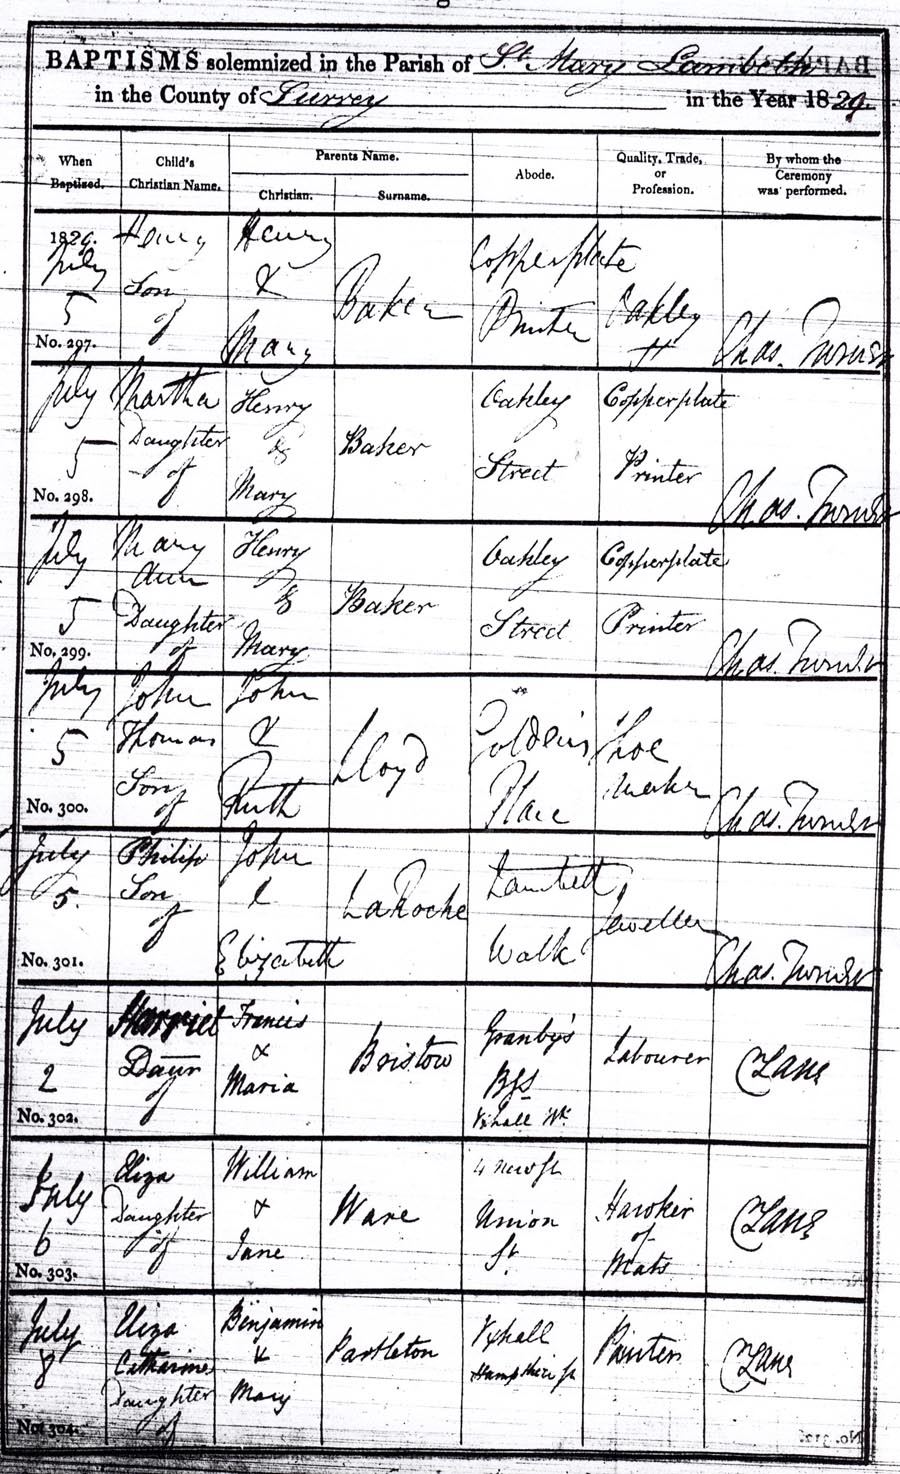 BAPTISMS solemnized in the Parish of St Mary Lambeth
in the County of Surrey in the Year 1829.
When Baptized.
Child's Christian Name.
Parents Name.
Christian.
Surname.
Abode.
Quality, Trade, or Profession.
By whom the Ceremony was performed.
1829.
July
5
No. 297.
Henry
Son
of
Henry
&
Mary
Baker
Copperplate
Printer
Oakley
St
Chas. Turner
July
5
No. 298.
Martha
Daughter
of
Henry
&
Mary
Baker
Oakley
Street
Copperplate
Printer
Chas. Turner
July
5
No. 299.
Mary
Ann
Daughter
of
Henry
&
Mary
Baker
Oakley
Street
Copperplate
Printer
Chas. Turner
July
5
No. 300.
John
Thomas
Son
of
John
&
Ruth
Lloyd
Place
Shoe
maker
Chas. Turner
July
5.
No. 301.
Philip
Son
of
John
&
Elizabeth
LaRoche
Lambeth
Walk
Jeweller
Chas. Turner
July
2
No. 302.
Harriet
Daur
of
Francis
&
Maria
Bristow
Granby's
Bgs
Vxhall Wk
Labourer
C Lane
July
6
No. 303.
Eliza
Daughter
of
William
&
Jane
Ware
4 New St
Union
St
Hawker
of
Mats
C Lane
July
8
No. 304.
Eliza
Catharine
Daughter
of
Benjamin
&
Mary
Partleton
Vxhall
Hampshire St
Painter
C Lane